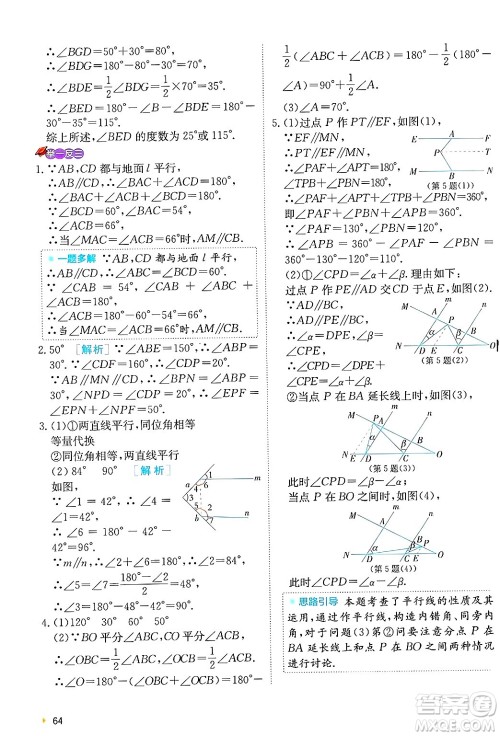 ∴∠BGD=50°+30°=80°,
∴∠BDG=180°-∠BGD-∠DBG=70°,
∴∠BDE=1/2∠BDG=1/2×70°=35°,
∴∠BED=180°-∠DBG-∠BDE=180°-30°-35°=115°.
综上所述,∠BED的度数为25°或115°.
举一反三
1.∵AB,CD都与地面l平行,
∴AB//CD,∴∠BAC+∠ACD=180°,
∴∠BAC+∠ACB+∠BCD=180°.
∵∠BCD=60°,∠BAC=54°,
∴∠ACB=66°,
∴当∠MAC=∠ACB=66°时,AM//CB.
一题多解 ∵AB,CD都与地面l平行,
∴AB//CD,∴∠ABC=∠BCD=60°.
∵∠CAB=54°,∠CAB+∠ABC+∠ACB=180°,
∴∠ACB=180°-60°-54°=66°,
∴当∠MAC=∠ACB=66°时,AM//CB.
2.50° [解析]∵∠ABE=150°,∴∠EBN=30°.∵∠CDF=160°,∴∠FDN=20°.
∵AB//MN,CD//MN,∴∠EPN=∠EBN=30°,∠NPD=∠FDN=20°,∴∠EPF=∠EPN+∠NPD=50°.
3.(1)①两直线平行,同位角相等
等量代换
②同位角相等,两直线平行
(2)84° 90° [解析]
如图,
∵∠1=42°,∴∠4=∠1=42°,∴∠6=180°-42°-42°=96°.
∵m//n,∴∠2+∠6=180°,
∴∠2=84°,
∴∠5=∠7=(180°-∠2)/2=48°,
∴∠3=180°-48°-42°=90°.
4.(1)120°
(2)∵BO平分∠ABC,CO平分∠ACB,
∴∠OBC=1/2∠ABC,∠OCB=1/2∠ACB,
∴∠O=180°-(∠OBC+∠OCB)=180°-
1/2(∠ABC+∠ACB)=180°-1/2(180°-∠A)=90°+1/2∠A.
(3)∠O=90°-1/2∠A
5.(1)过点P作PT//EF,如图(1).
∵EF//MN,∴PT//MN,
∴∠PAF+∠APT=180°,∠TPB+∠PBN=180°,
∴∠PAF+∠APT+∠TPB+∠PBN=360°,即
∠PAF+∠PBN+∠APB=360°.
∵∠PAF+∠PBN=2∠APB,
∴3∠APB=360°,∴∠APB=120°.
(第5题(1))
(2)①∠CPD=∠α+∠β.理由如下:
过点P作PE//AD交CD于点E,如图(2).
∵AD//BC,
∴AD//PE//BC,
∴∠α=∠DPE,
∠β=∠CPE,
∴∠CPD=∠DPE+∠CPE=∠α+∠β.
(第5题(2))
②当点P在BA延长线上时,如图(3),
(第5题(3))
此时∠CPD=∠β-∠α;
当点P在BO之间时,如图(4),
(第5题(4))
此时∠CPD=∠α-∠β.
思路引导 本题考查了平行线的性质及其运用,通过作平行线,构造内错角、同旁内角,对于问题(3)第②问要注意分点P在BA延长线上及点P在BO之间两种情况进行讨论.
64